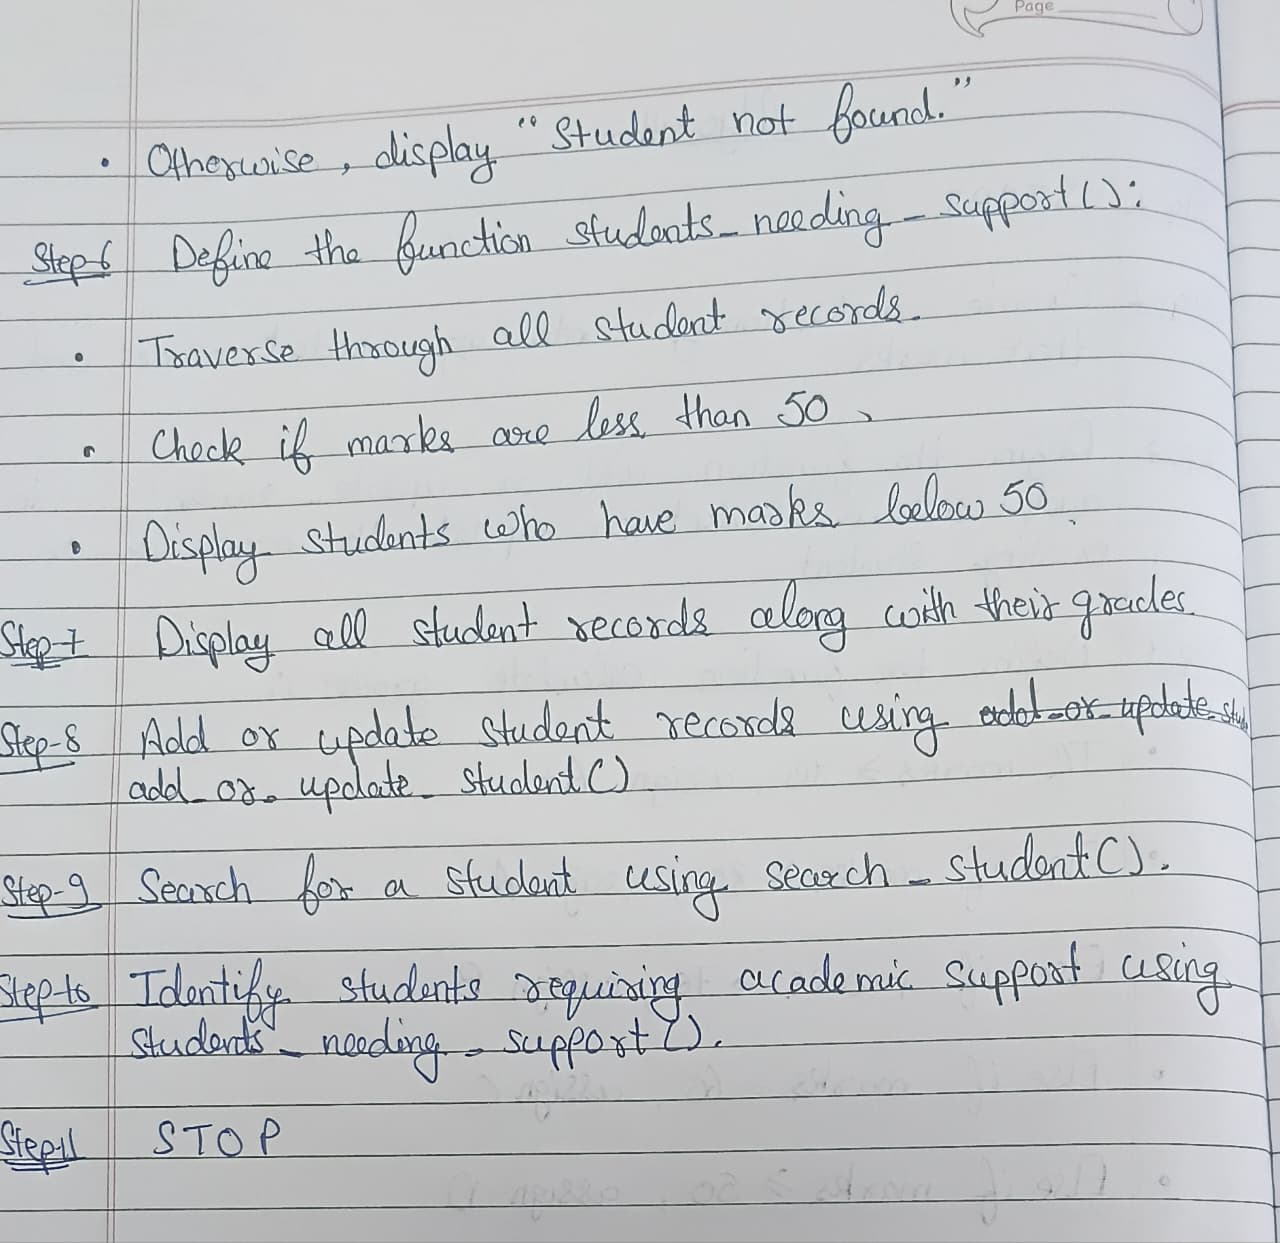 Page
• Otherwise, display "Student not found."
Step-6 Define the function students_needing_support():
• Traverse through all student records.
• Check if marks are less than 50.
• Display students who have marks below 50.
Step-7 Display all student records along with their grades
Step-8 Add or update student records using add_or_update_stud
add_or_update_student()
Step-9 Search for a student using search_student().
Step-10 Identify students requiring academic support using
students_needing_support().
Step11 STOP